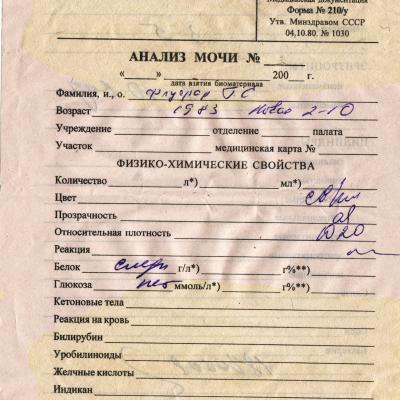 Медицинская документация
Форма № 210/у
Утв. Минздравом СССР
04.10.80. № 1030
АНАЛИЗ МОЧИ №
«____» ________ 200__ г.
дата взятия биоматериала
Фамилия, и., о.
Возраст 1983 2-10
Учреждение отделение палата
Участок медицинская карта №
ФИЗИКО-ХИМИЧЕСКИЕ СВОЙСТВА
Количество л*) мл*)
Цвет
Прозрачность
Относительная плотность 1020
Реакция
Белок следы г/л*) г%**)
Глюкоза нет ммоль/л*) г%**)
Кетоновые тела
Реакция на кровь
Билирубин
Уробилиноиды
Желчные кислоты
Индикан